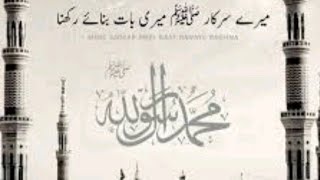 میرے سرکار ﷺ میری بات بنائے رکھنا
MERE SARKAR MERI BAAT BANAYE RAKHNA
ﷺ
محمد رسول الله